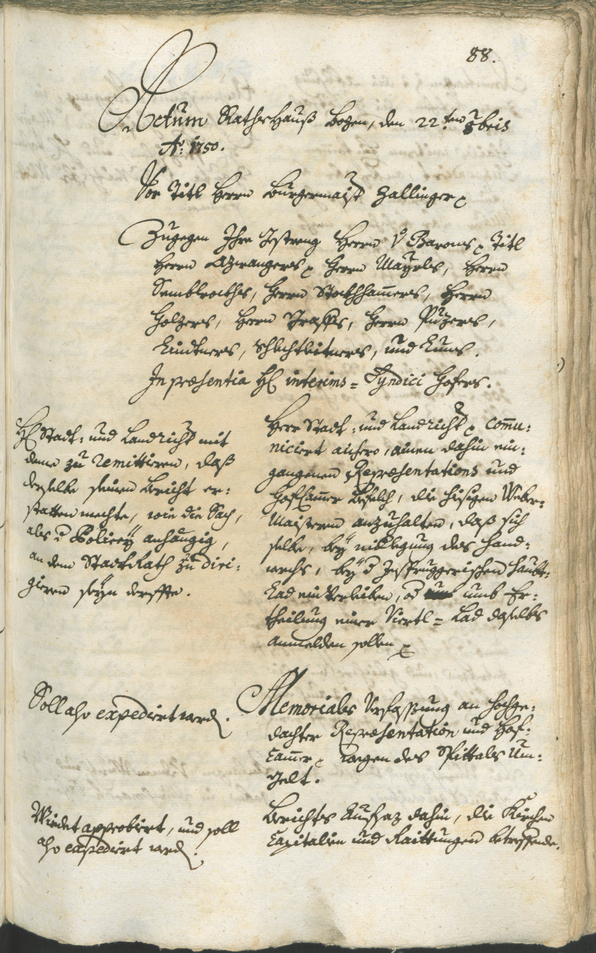 88.
Actum Rathshauß Bozen, den 22ten 8bris
A: 1750.
Vor Titl Herrn Burgermaist Zallinger
Zugegen Ihro Gestreng Herrn v Barons, Titl
Herrn Azwangers, Herrn Mayrls, Herrn
Sembrothes, Herrn Stokhhamers, Herrn
Holzers, Herrn Graffs, Herrn Puzers,
Lindners, Schlechtleitners, und Kuns.
In præsentia H: interims= Syndici Hofers.
H: Stadt: und Landricht mit
deme zu remittiren, daß
derselbe seinen Bericht er:
statten mechte, wie die Sach,
als Policey anhängig,
an dem Stadt Rath zu diri:
giren seyn derffte.
Herr Stadt: und Landricht comu:
niciert anhero, ainen dahin ein:
gangenen Repræsentations und
Hofcammer Befelch, die hiesigen Weber=
Maistern anzuhalten, daß sich
selbe, bey niderlegung des Hand=
werchs, bey d Insprugerischen Haubt=
Lad einverleiben, od umb Er:
theilung einer Viertl= Lad daselbs
anmelden sollen
Soll also expediert werd.
Memorials Verfassung an hochge:
dachter Repræsentation und Hof=
Camer, wegen des Spittals Um=
gelt.
Wirdet approbiert, und soll
also expediert werd.
Berichts Aufsaz dahin, die Kirchen
Capitalien und Raittungen betreffende.